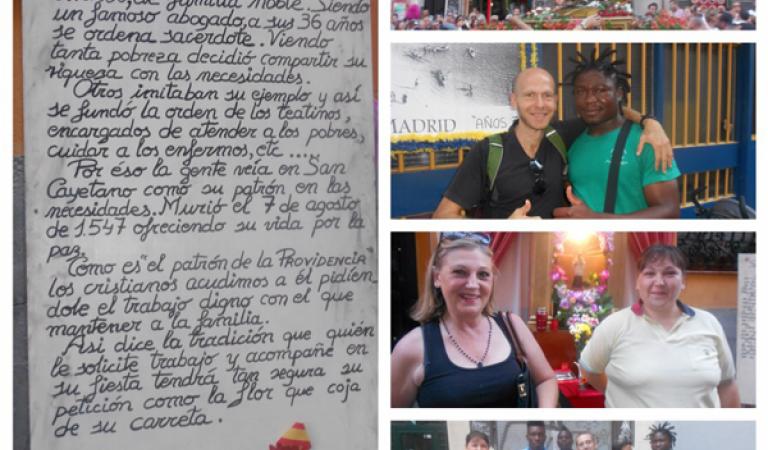 familia noble. Siendo
un famoso abogado, a sus 36 años
se ordena sacerdote. Viendo
tanta pobreza decidió compartir su
riqueza con las necesidades.
Otros imitaban su ejemplo y así
se fundó la orden de los teatinos,
encargados de atender a los pobres,
cuidar a los enfermos, etc ....
Por éso la gente veía en San
Cayetano como su patrón en las
necesidades. Murió el 7 de agosto
de 1.547 ofreciendo su vida por la
paz.
Cómo es "el patrón de la PROVIDENCIA"
los cristianos acudimos a él pidien
dole el trabajo digno con el que
mantener a la familia.
Asi dice la tradición que quién
le solicite trabajo y acompañe en
su fiesta tendrá tan segura su
petición como la flor que coja
de su carreta.
MADRID "AÑOS